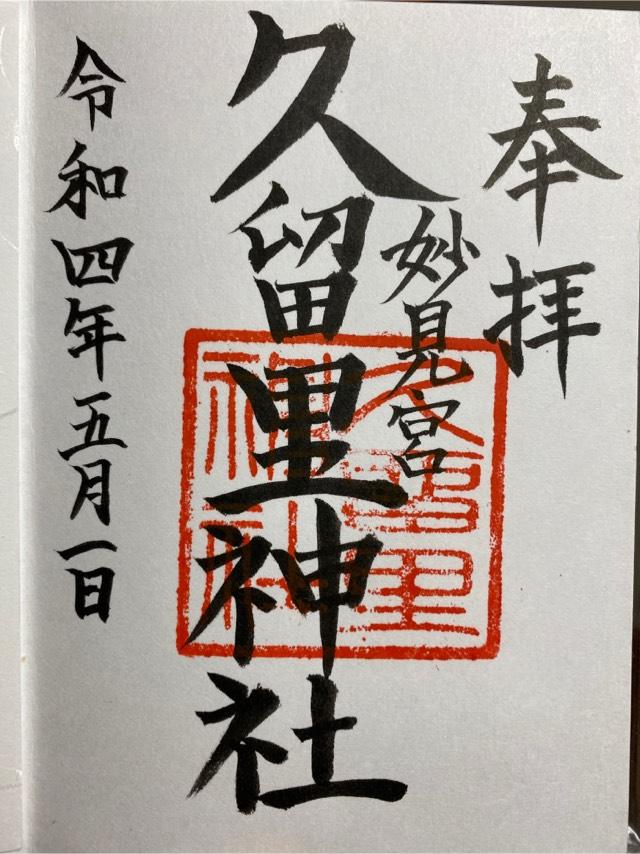 奉拝
妙見宮
久留里神社
久留里
神社
令和四年五月一日